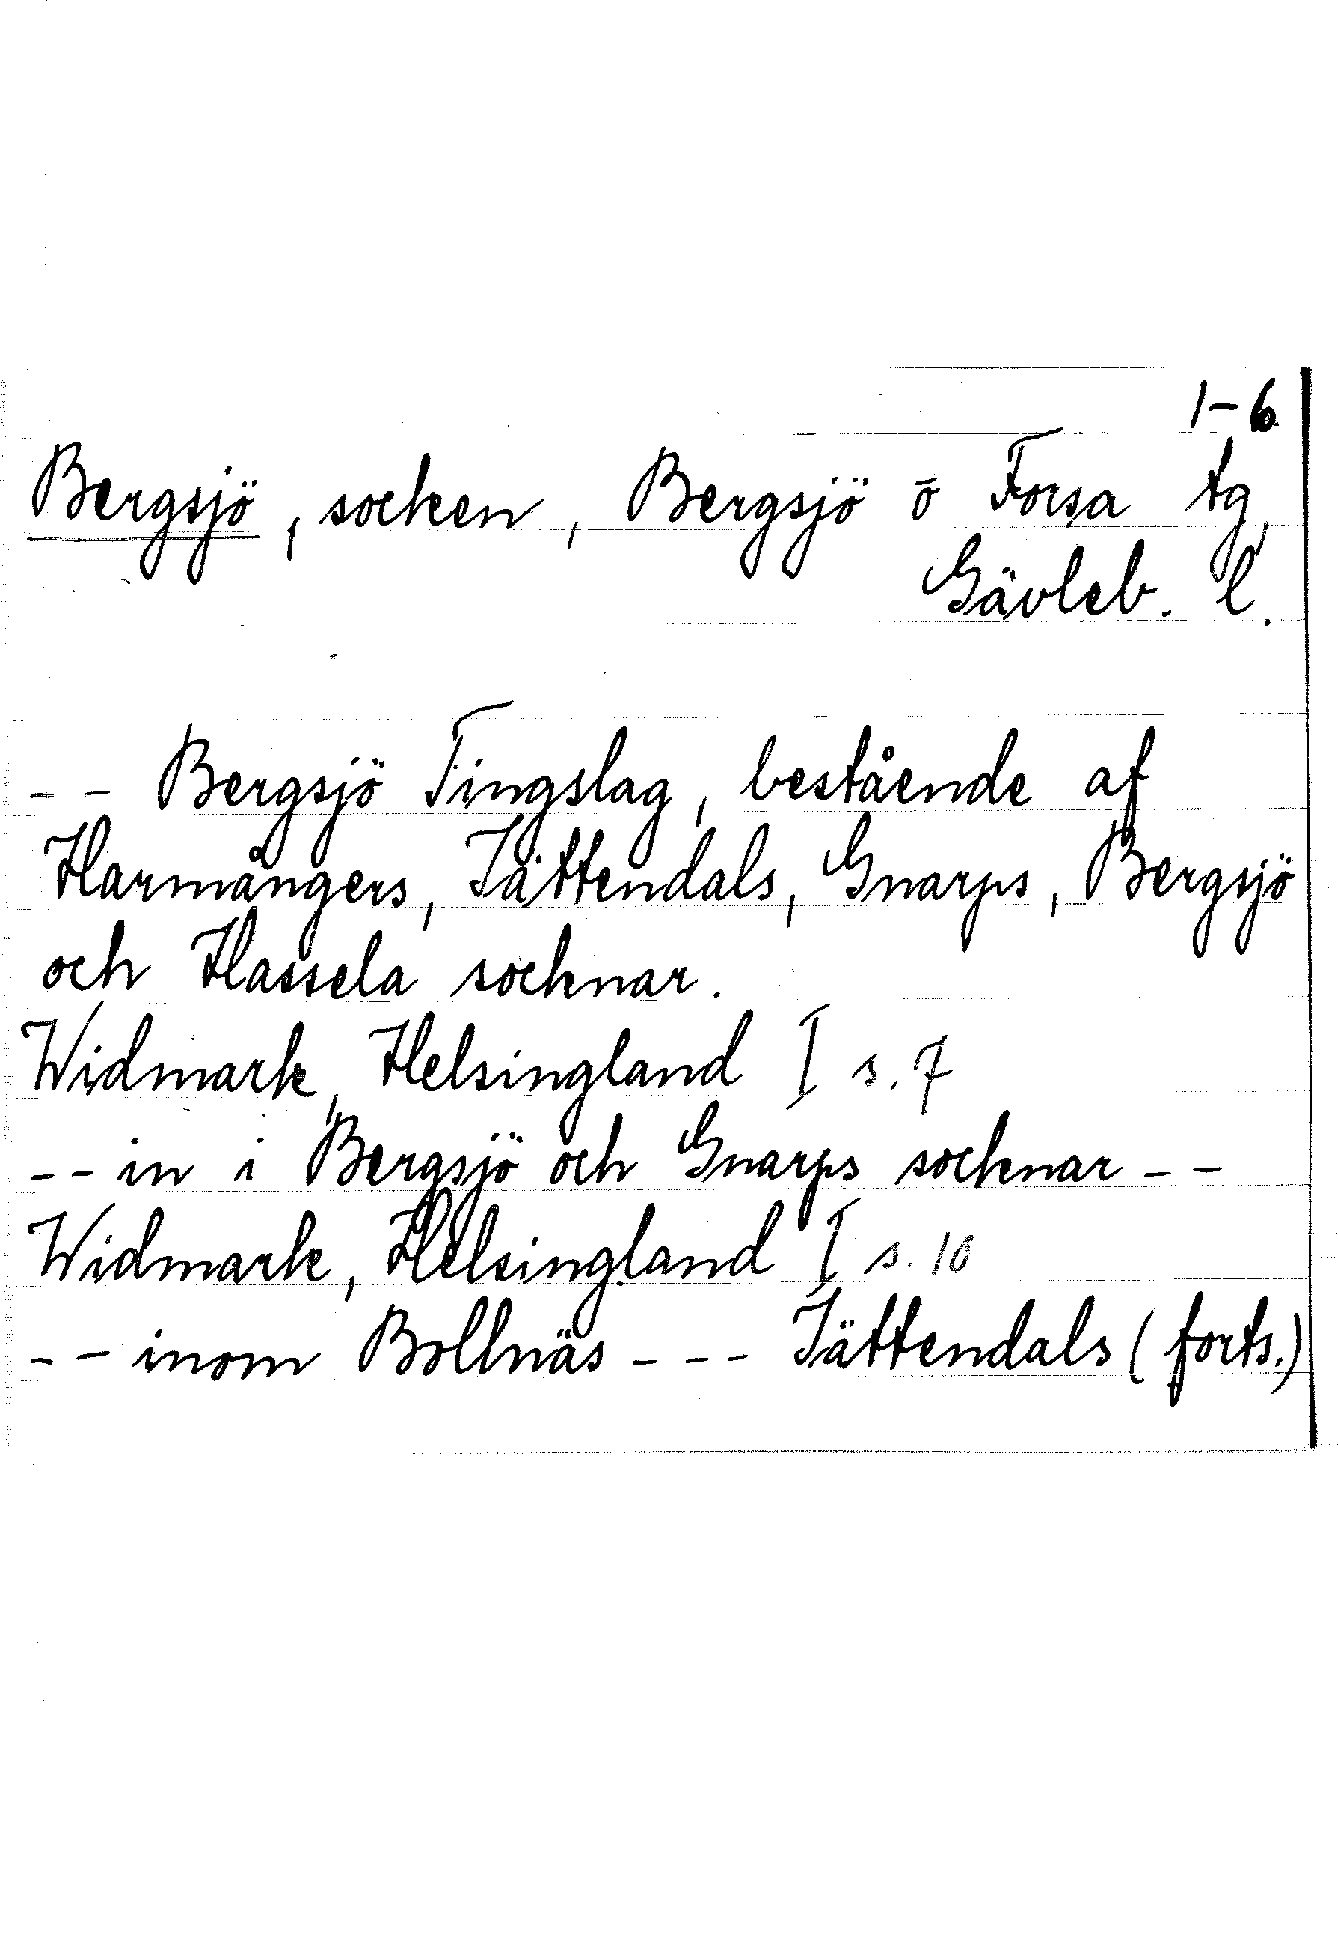 1-6
Bergsjö, socken, Bergsjö o Forsa tg,
Gävleb. l.
-- Bergsjö Tingslag, bestående af
Harmångers, Jättendals, Gnarps, Bergsjö
och Hassela socknar.
Widmark, Helsingland I s. 7
-- in i Bergsjö och Gnarps socknar --
Widmark, Helsingland I s. 10
-- inom Bollnäs --- Jättendals (forts.)